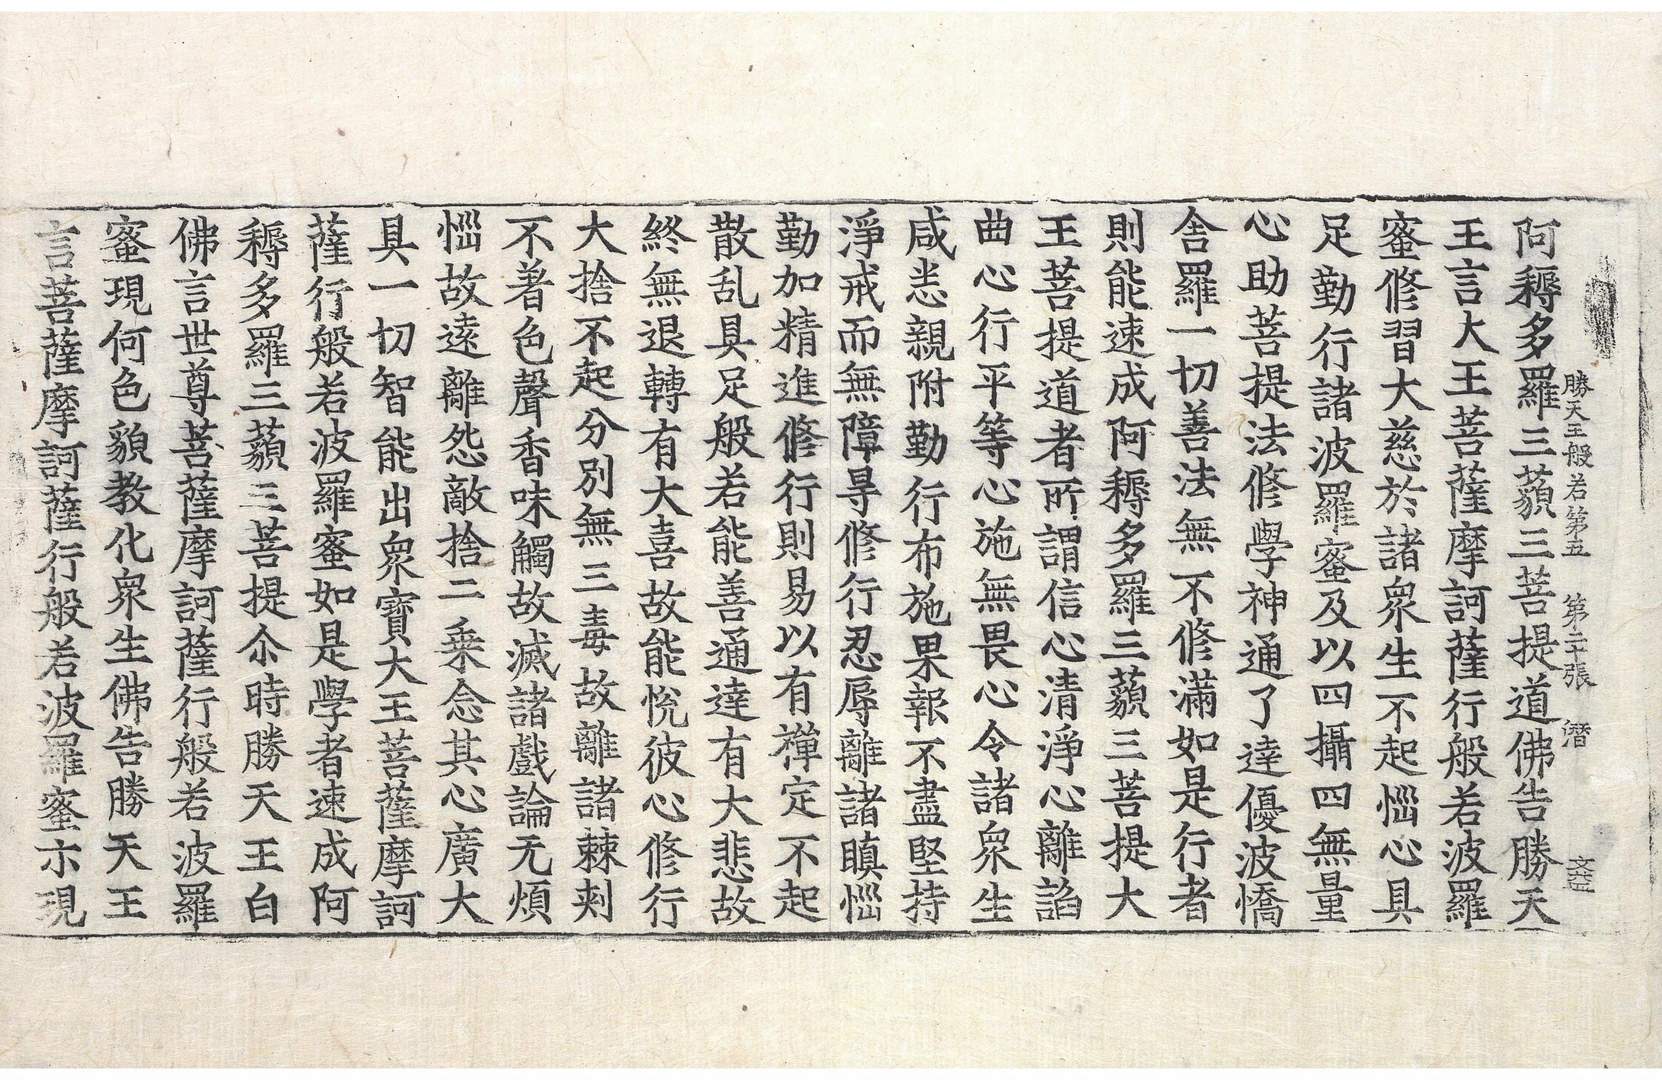 勝天王般若第五　第二十張　潛
阿耨多羅三藐三菩提道佛告勝天
王言大王菩薩摩訶薩行般若波羅
蜜修習大慈於諸衆生不起惱心具
足勤行諸波羅蜜及以四攝四無量
心助菩提法修學神通了達優波憍
舍羅一切善法無不修滿如是行者
則能速成阿耨多羅三藐三菩提大
王菩提道者所謂信心清淨心離諂
曲心行平等心施無畏心令諸衆生
咸悉親附勤行布施果報不盡堅持
淨戒而無障㝵修行忍辱離諸瞋惱
勤加精進修行則易以有禪定不起
散乱具足般若能善通達有大悲故
終無退轉有大喜故能悅彼心修行
大捨不起分別無三毒故離諸棘刺
不著色聲香味觸故滅諸戲論无煩
惱故遠離怨敵捨二乘念其心廣大
具一切智能出衆寶大王菩薩摩訶
薩行般若波羅蜜如是學者速成阿
耨多羅三藐三菩提尒時勝天王白
佛言世尊菩薩摩訶薩行般若波羅
蜜現何色貌教化衆生佛告勝天王
言菩薩摩訶薩行般若波羅蜜亦現